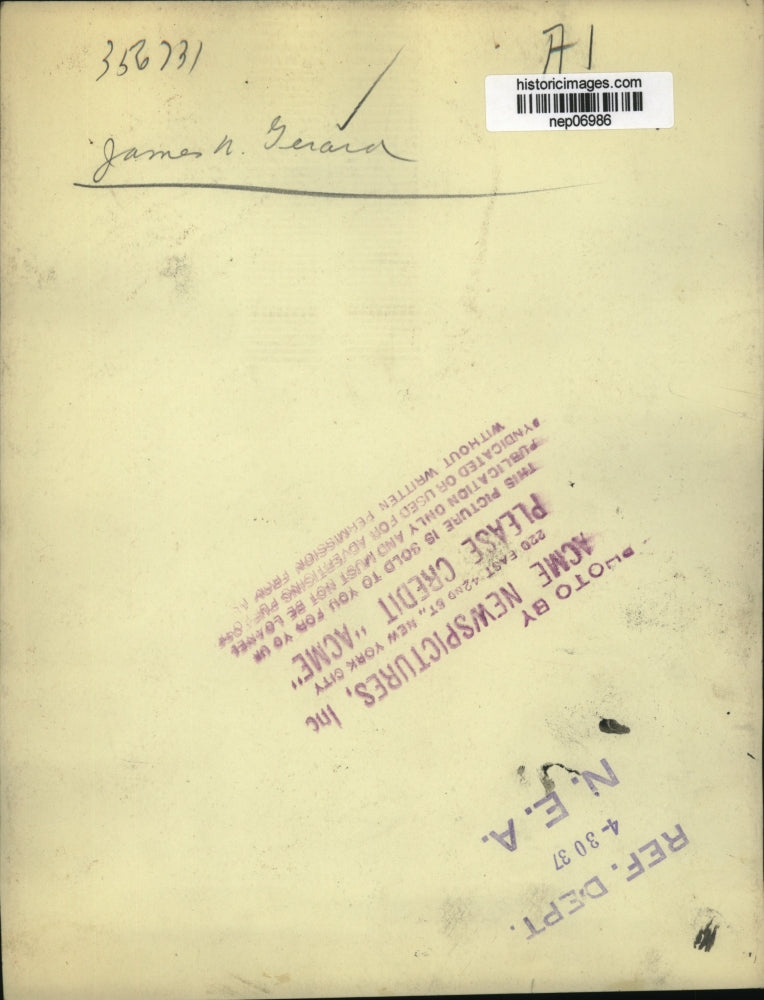 356731
A1
historicimages.com
nep06986
James W. Gerard
PHOTO BY
ACME NEWSPICTURES, Inc
220 EAST 42ND ST., NEW YORK CITY
PLEASE CREDIT "ACME"
THIS PICTURE IS SOLD TO YOU FOR YOUR
PUBLICATION ONLY AND MUST NOT BE LOANED
SYNDICATED OR USED FOR ADVERTISING PURPOSES
WITHOUT WRITTEN PERMISSION FROM
REF. DEPT.
4-30 37
N. E. A.